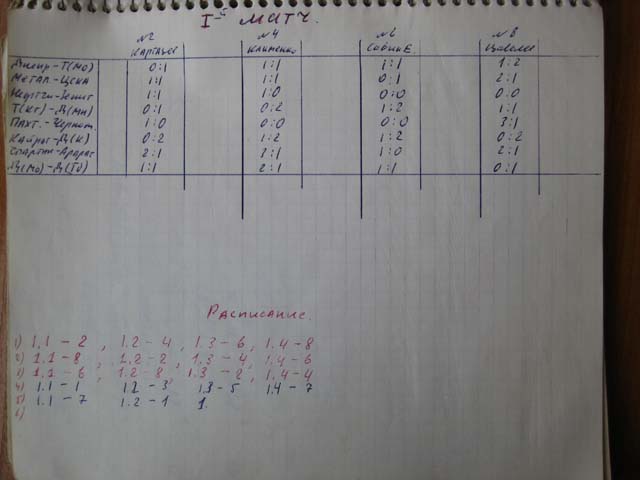 I-й МАТЧ.
№2 №4 №6 №8
КАРПАЦЕВ КЛИМЕНКО
Днепр-Т(Мо) 0:1 1:1 1:1 1:2
Метал-ЦСКА 1:1 1:1 0:1 2:1
Нефтчи-Зенит 1:1 1:0 0:0 0:0
Т(Кт)-Д(Мн) 0:1 0:2 1:2 1:1
Пахт.-Черном 1:0 0:0 0:0 3:1
Кайрат-Д(К) 0:2 1:2 1:2 0:2
Спартак-Арарат 2:1 3:1 1:0 2:1
Д(Мо)-Д(Тб) 1:1 2:1 1:1 0:1
Расписание.
1) 1.1-2, 1.2-4, 1.3-6, 1.4-8
2) 1.1-8, 1.2-2, 1.3-4, 1.4-6
3) 1.1-6, 1.2-8, 1.3-2, 1.4-4
4) 1.1-1 1.2-3 1.3-5 1.4-7
5) 1.1-7 1.2-1 1.
6)